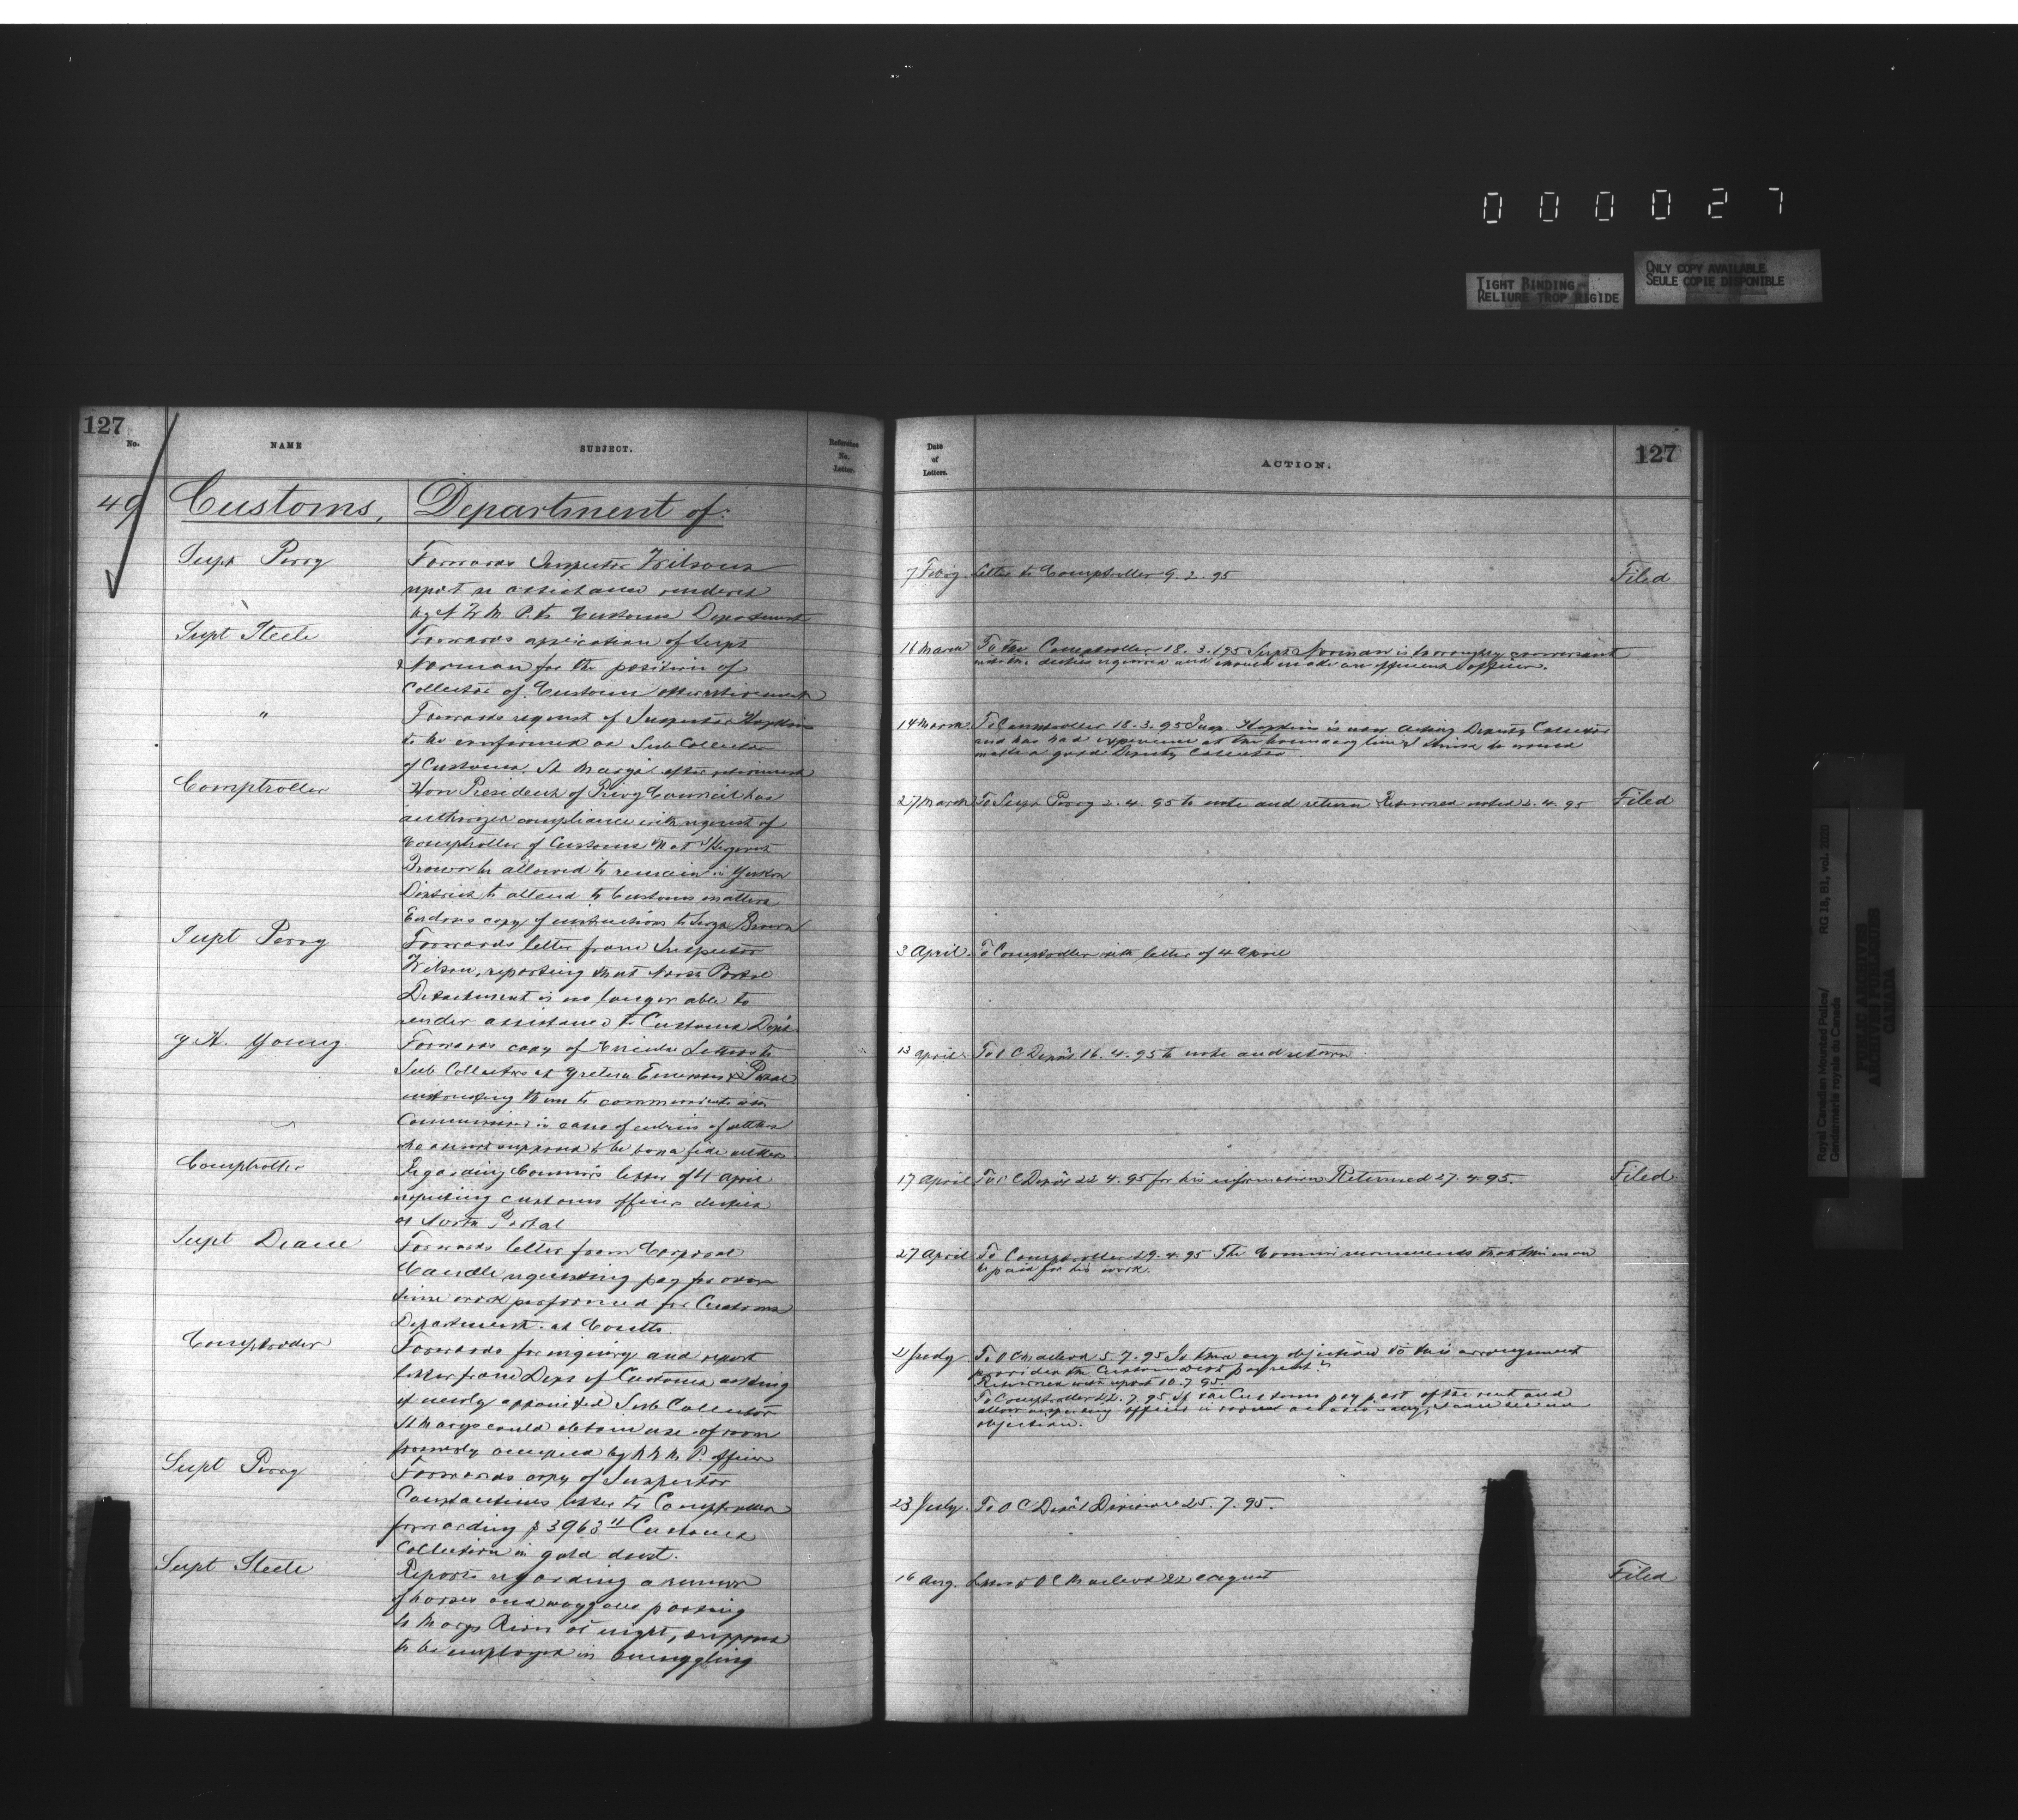 000027
TIGHT BINDING
RELIURE TROP RIGIDE
ONLY COPY AVAILABLE
SEULE COPIE DISPONIBLE
127
No.
NAME
SUBJECT.
Reference
No.
Letter.
49
Customs, Department of:
Supt Perry
Forwards Inspector Wilsons
report re assistance rendered
by N.W.M.P. to Customs Department
Supt Steele
Forwards application of Supt
Norman for the position of
Collector of Customs after retirement
"
Forwards request of Inspector Hopkins
to be confirmed as Sub Collector
of Customs, St Marys after retirement
Comptroller
Hon President of Privy Council has
authorized compliance with request of
Comptroller of Customs that Sergeant
Brown be allowed to remain in Yukon
District to attend to Customs matters
Encloses copy of instructions to Sergt Brown
Supt Perry
Forwards letter from Inspector
Wilson, reporting that North Portal
Detachment is no longer able to
render assistance to Customs Dept
G H. Young
Forwards copy of Circular Letters to
Sub Collectors at Gretna Emerson & Portal
instructing them to communicate with
Commissioner in case of entries of settlers
who are not supposed to be bona fide settlers
Comptroller
Regarding Commr's letter of 4 April
respecting customs officers duties
at North Portal
Supt Deane
Forwards letter from Corporal
requesting pay for over
time work performed for Customs
Department at Coutts.
Comptroller
Forwards for inquiry and report
letter from Dept of Customs asking
if newly appointed Sub Collector
St Marys could obtain use of room
formerly occupied by N.W.M.P. officer
Supt Perry
Forwards copy of Inspector
Constantines letter to Comptroller
forwarding $3963 11 Customs
Collection in gold dust.
Supt Steele
Reports regarding a rumour
of horses and waggons passing
St Marys River at night, supposed
to be employed in smuggling
Date
of
Letters.
ACTION.
127
7 Feby Letter to Comptroller 9. 2. 95 Filed
16 March To the Comptroller 18. 3. 195 Supt Norman is thoroughly conversant
with the duties required and should make an efficient officer.
14 March To Comptroller 18. 3. 95 Insp. Hopkins is now acting Deputy Collector
and has had experience at the boundary line & I think he would
make a good Deputy Collector
27 March To Supt Perry 2. 4. 95 to note and return Returned noted 2. 4. 95 Filed
3 April To Comptroller with letter of 4 April
13 April To O C Depôt 16. 4. 95 to note and return
17 April To O C Depôt 22 4. 95 for his information Returned 27. 4. 95. Filed
27 April To Comptroller 29. 4. 95 The Commr recommends that this man
be paid for his work.
2 July To O C Macleod 5. 7. 95 Is there any objection to this arrangement
provided the Customs Dept pay rent?
Returned with report 10. 7 95.
To Comptroller 22. 7. 95 If the Customs pay part of the rent and
allow inspecting officer a room occasionally, I can see no
objection.
23 July To O C Depôt Division 25. 7. 95.
16 Aug. Letter to O C Macleod 22 August Filed
Royal Canadian Mounted Police/
Gendarmerie royale du Canada
RG 18, B1, vol. 2020
PUBLIC ARCHIVES
ARCHIVES PUBLIQUES
CANADA